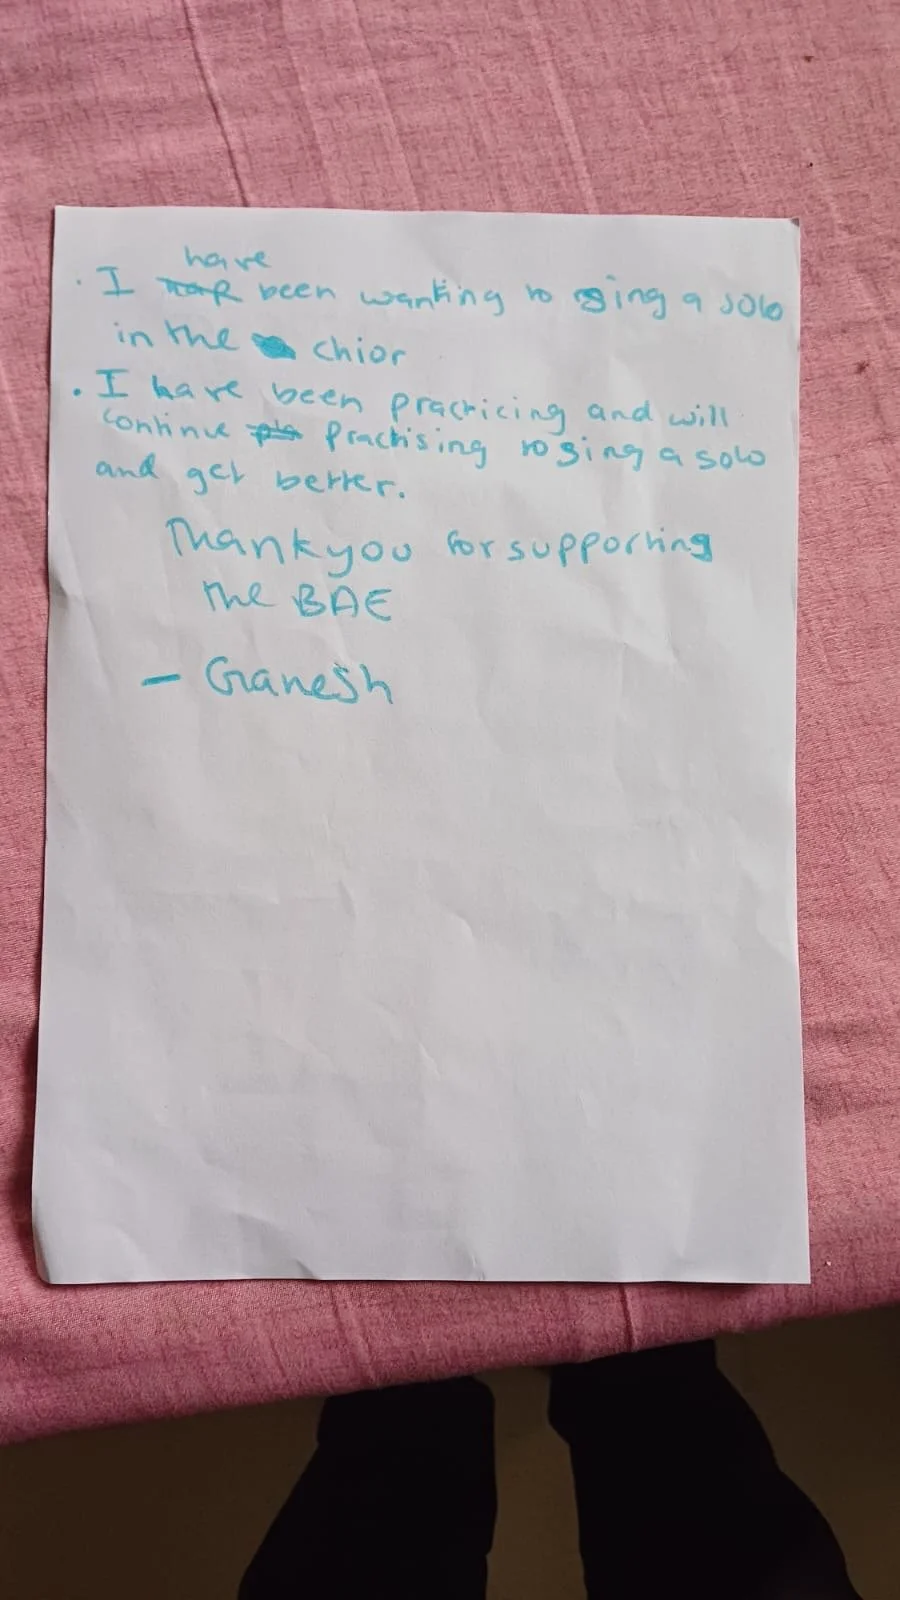 • I have been wanting to sing a solo
in the chior
• I have been practicing and will
continue practising to sing a solo
and get better.
Thankyou for supporting
the BAE
- Ganesh